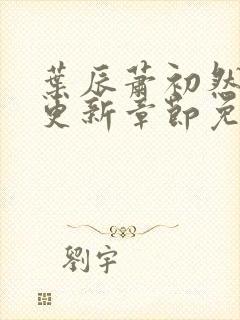 葉辰蕭初然
更新章節免
劉宇